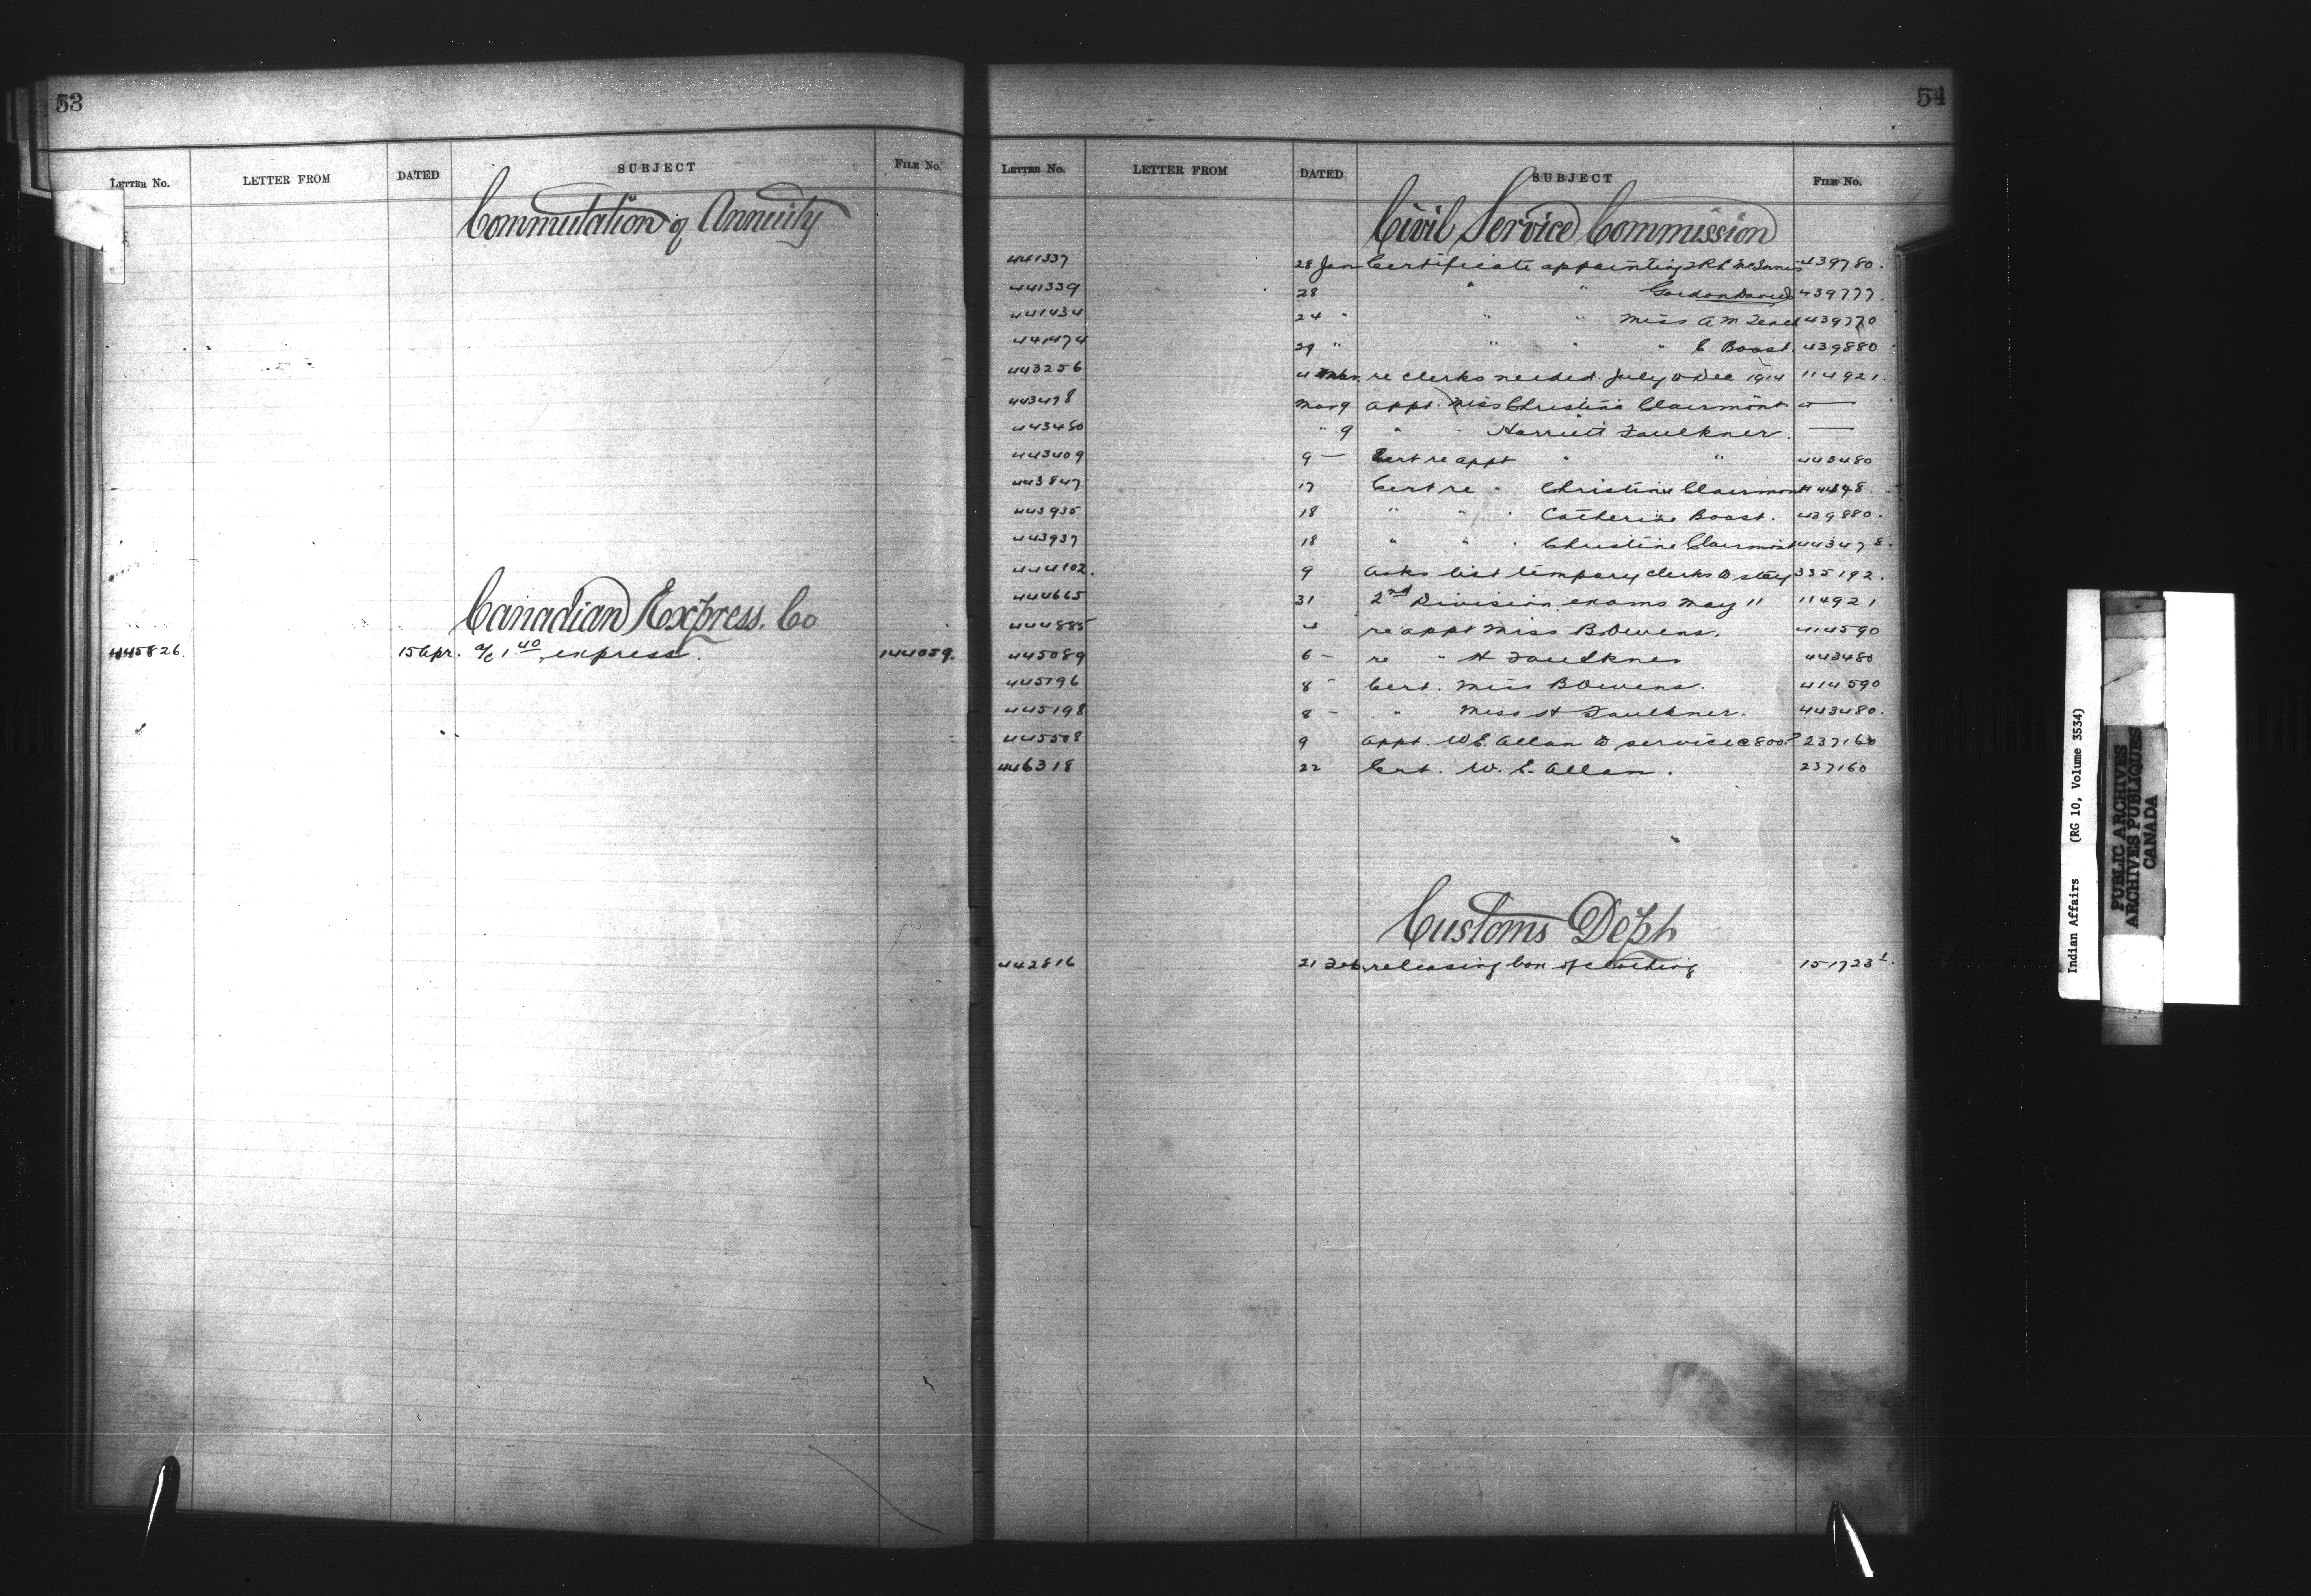 53
LETTER NO. LETTER FROM DATED SUBJECT FILE NO.
Commutation of Annuity
Canadian Express. Co
445826. 15 Apr. a/c 1 40 express. 144059.
54
LETTER NO. LETTER FROM DATED SUBJECT FILE NO.
Civil Service Commission
441337 28 Jan Certificate appointing McInnis 439780.
441339 28 " " Gordon 439777.
441434 24 " " " Miss A M 439770
441474 29 " " " " C Boast. 439880
443256 4 re clerks needed July to Dec 1914 114921.
443478 Mar 9 appt. Miss Christina Clairmont —
443480 " 9 " " Harriett Faulkner. —
443409 9 — Cert re appt " " 443480
443847 17 Cert re " Christina Clairmont
443935 18 " " " Catherine Boast. 439880.
443937 18 " " " Christine Clairmont 443478.
444102. 9 asks list tempary clerks to stay 335192.
444665 31 2nd Division exams May 11 114921
444885 4 re appt Miss B Owens. 414590
445089 6 — re " H Faulkner 443480
445196 8 " Cert. Miss B Owens. 414590
445198 8 — " Miss H Faulkner. 443480.
445508 9 appt. W E. Allan to service 800 237160
446318 22 Cert. W. E. Allan. 237160
Customs Dept
442816 21 Feb. releasing box of clothing 151723 1.
Indian Affairs (RG 10, Volume 3534)
PUBLIC ARCHIVES
ARCHIVES PUBLIQUES
CANADA